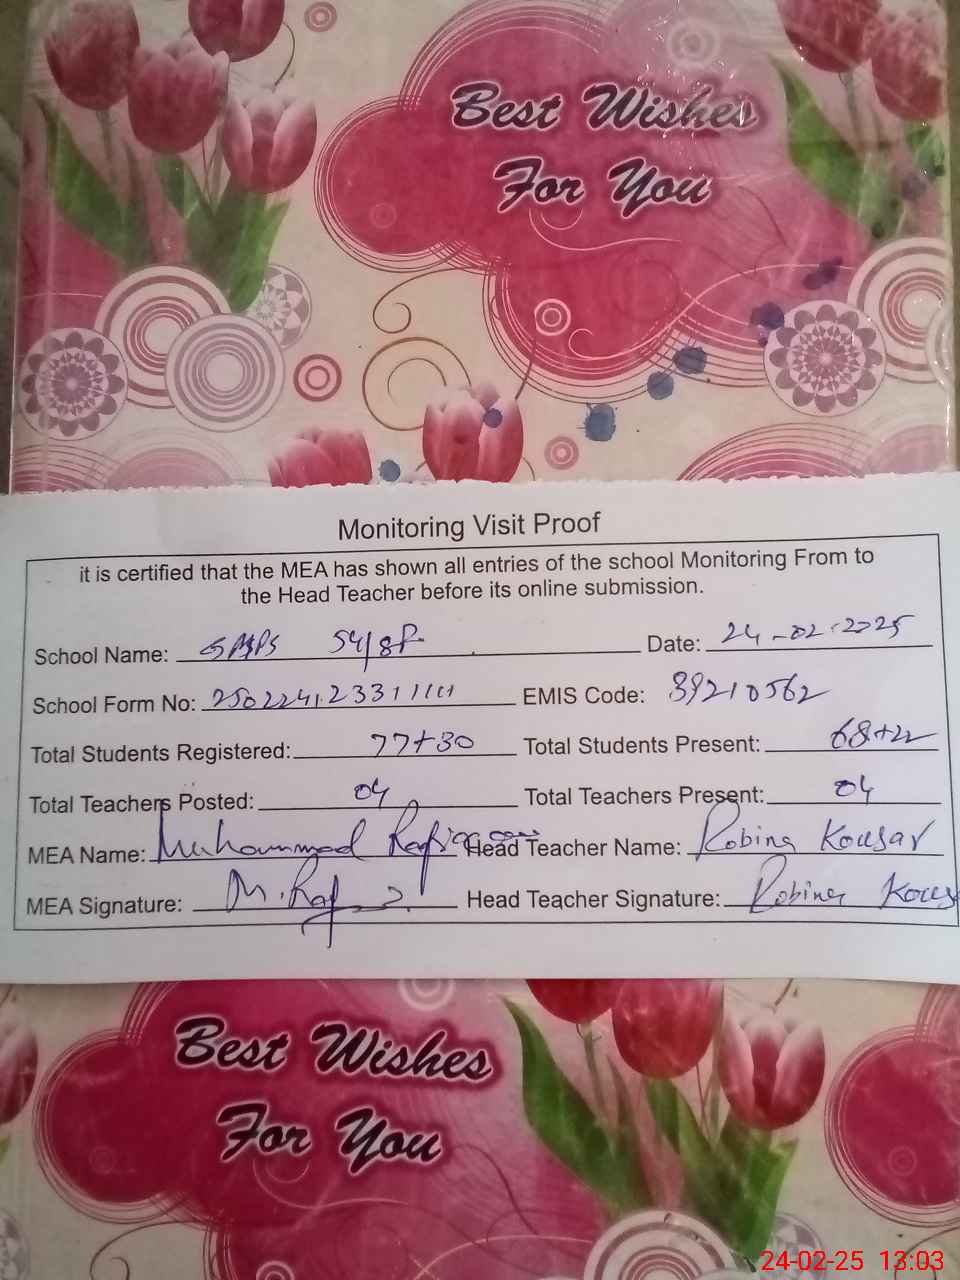 Best Wishes
For You
Monitoring Visit Proof
it is certified that the MEA has shown all entries of the school Monitoring From to
the Head Teacher before its online submission.
School Name: 54/8R Date: 24-02-2025
School Form No: EMIS Code: 39210562
Total Students Registered: 77+30 Total Students Present: 68+22
Total Teachers Posted: 04 Total Teachers Present: 04
MEA Name: Muhammad Head Teacher Name: Robina Kousar
MEA Signature: Head Teacher Signature: Robina
Best Wishes
For You
24-02-25 13:03